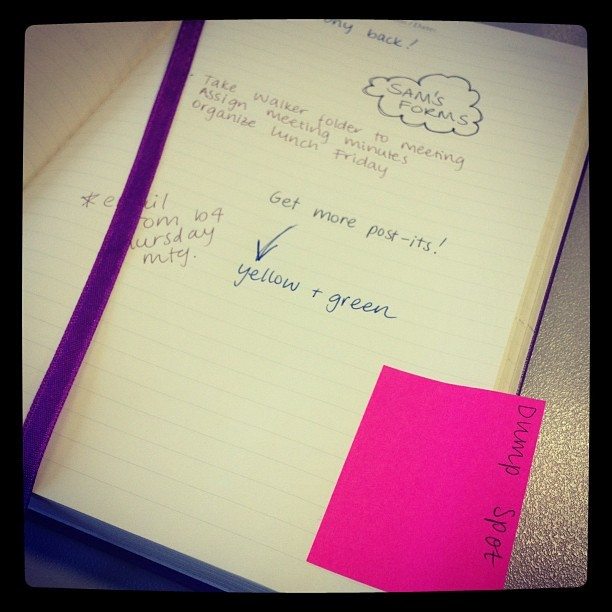 back!
SAM'S
FORMS
Take Walker folder to meeting
Assign meeting minutes
organize lunch Friday
b4
mtg.
Get more post-its!
yellow + green
Dump Spot